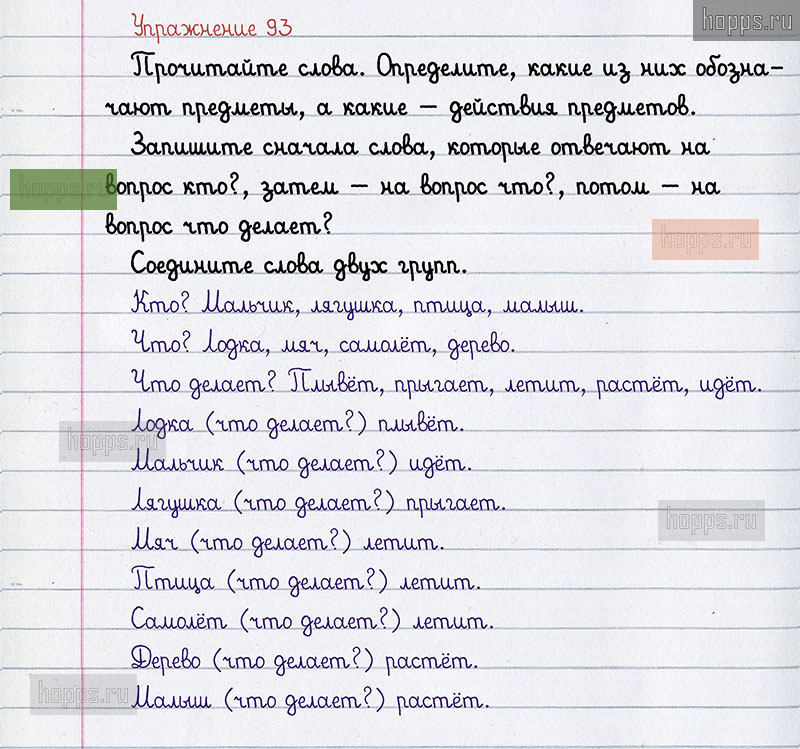 hopps.ru
Упражнение 93
Прочитайте слова. Определите, какие из них обозна-
чают предметы, а какие – действия предметов.
Запишите сначала слова, которые отвечают на
hopps.ru
вопрос кто?, затем – на вопрос что?, потом – на
вопрос что делает?
hopps.ru
Соедините слова двух групп.
Кто? Мальчик, лягушка, птица, малыш.
Что? Лодка, мяч, самолёт, дерево.
Что делает? Плывёт, прыгает, летит, растёт, идёт.
Лодка (что делает?) плывёт.
hopps.ru
Мальчик (что делает?) идёт.
Лягушка (что делает?) прыгает.
hopps.ru
Мяч (что делает?) летит.
Птица (что делает?) летит.
Самолёт (что делает?) летит.
Дерево (что делает?) растёт.
hopps.ru
Малыш (что делает?) растёт.